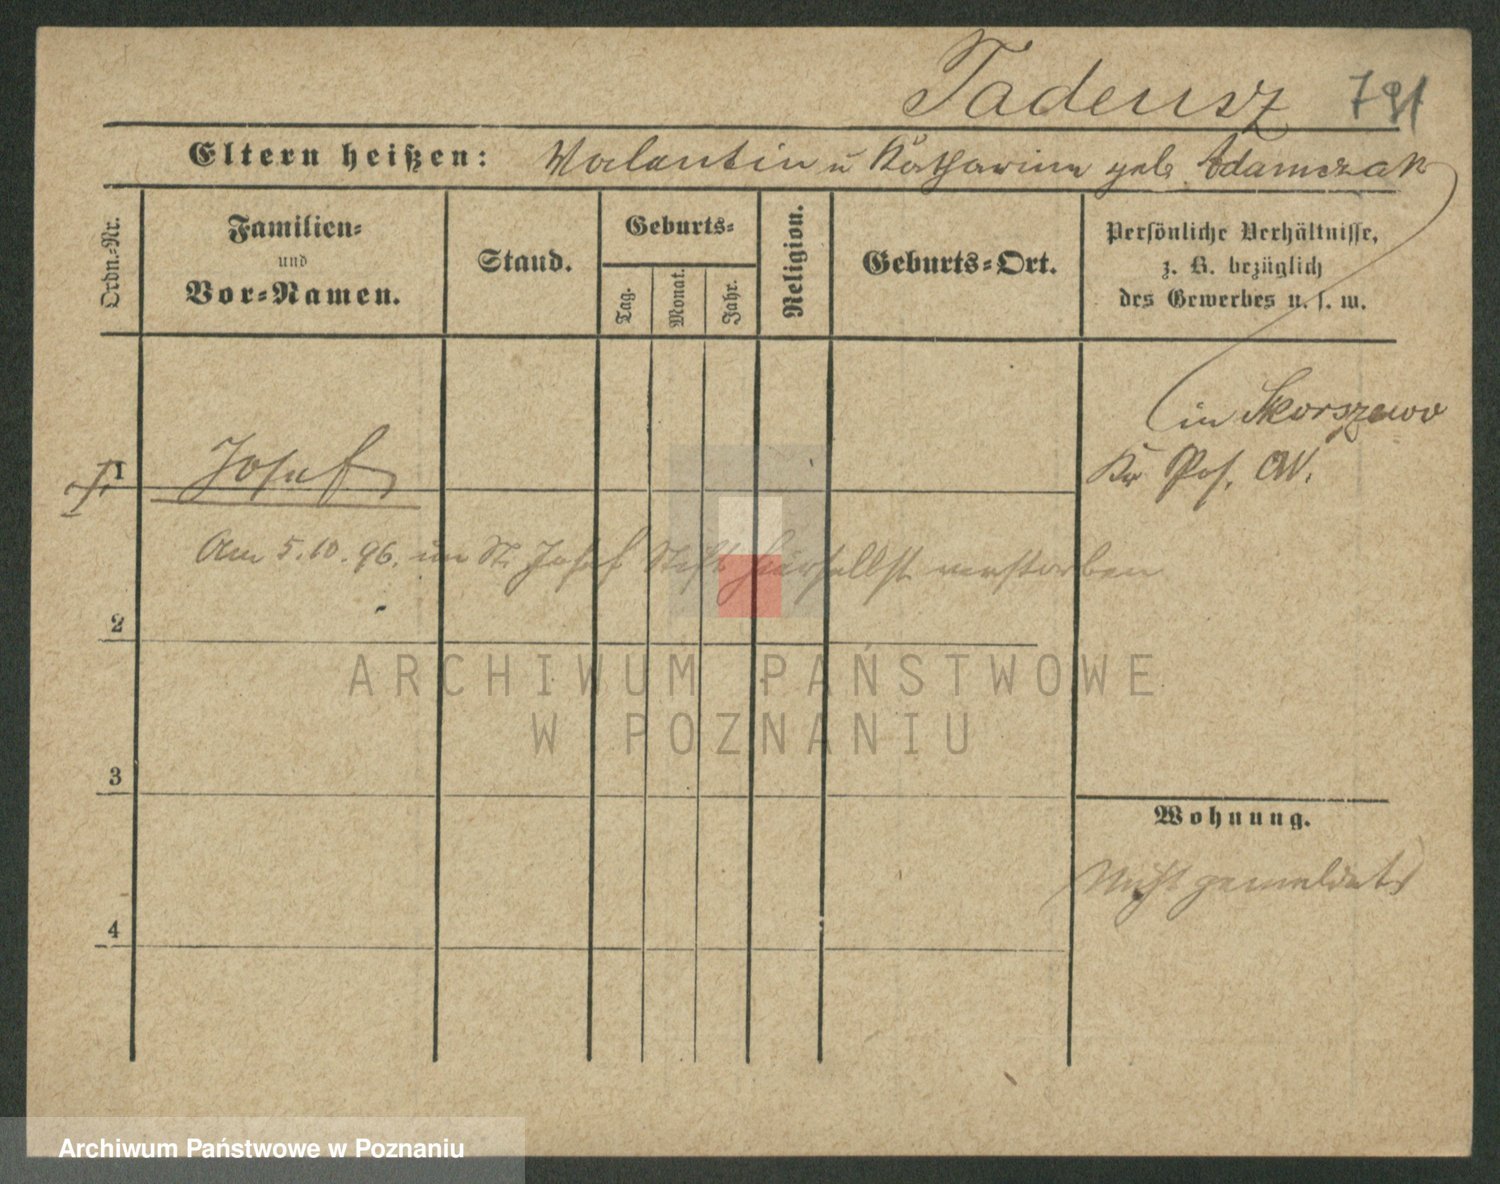 Tadeusz 791
Eltern heißen: Valentin u Katharina geb. Adamczak
Ordn.-Nr.
Familien-
und
Vor-Namen.
Stand.
Geburts-
Tag.
Monat.
Jahr.
Religion.
Geburts-Ort.
Persönliche Verhältnisse,
z. B. bezüglich
des Gewerbes u. s. w.
in Skorszewo
Kr Pos. W.
1 Josef
Am 5.10.96. im St. Josef Stift hierselbst verstorben
2
3
4
Wohnung.
Nicht gemeldet
ARCHIWUM PAŃSTWOWE
W POZNANIU
Archiwum Państwowe w Poznaniu